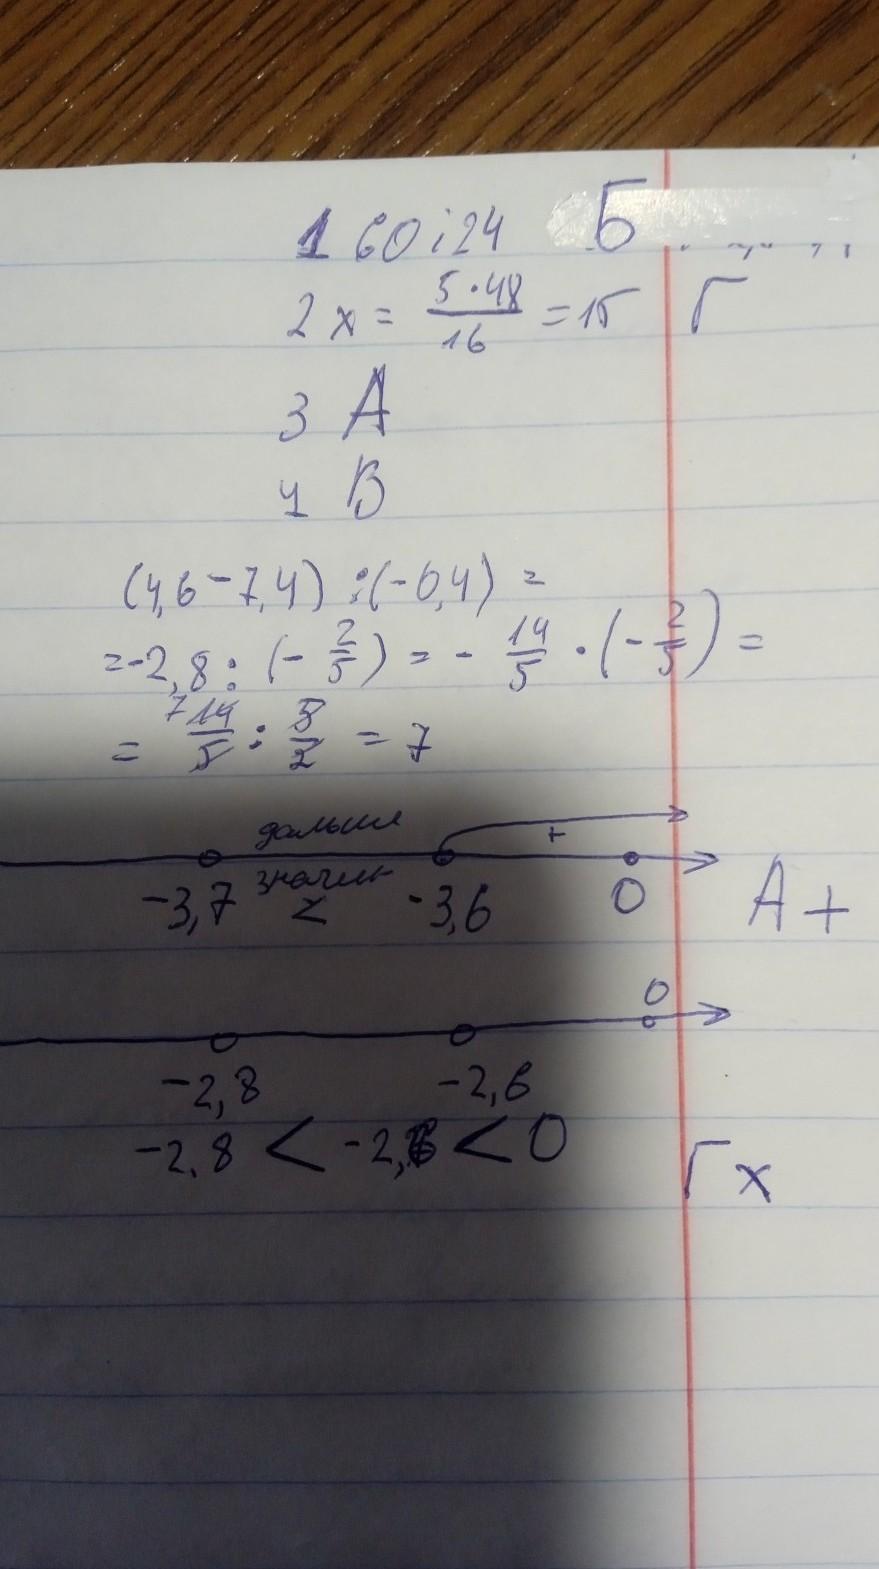 1 60 i 24 Б
2 x = 5·48/16 = 15 Г
3 А
4 В
(4,6-7,4) :(-0,4) =
=-2,8 : (- 2/5) = - 14/5 · (- 2/5) =
= 7 14/5 : 5/2 = 7
дальше
+
значит
-3,7 < -3,6 0 А +
0
-2,8 -2,6
-2,8 < -2,6 < 0
Г х